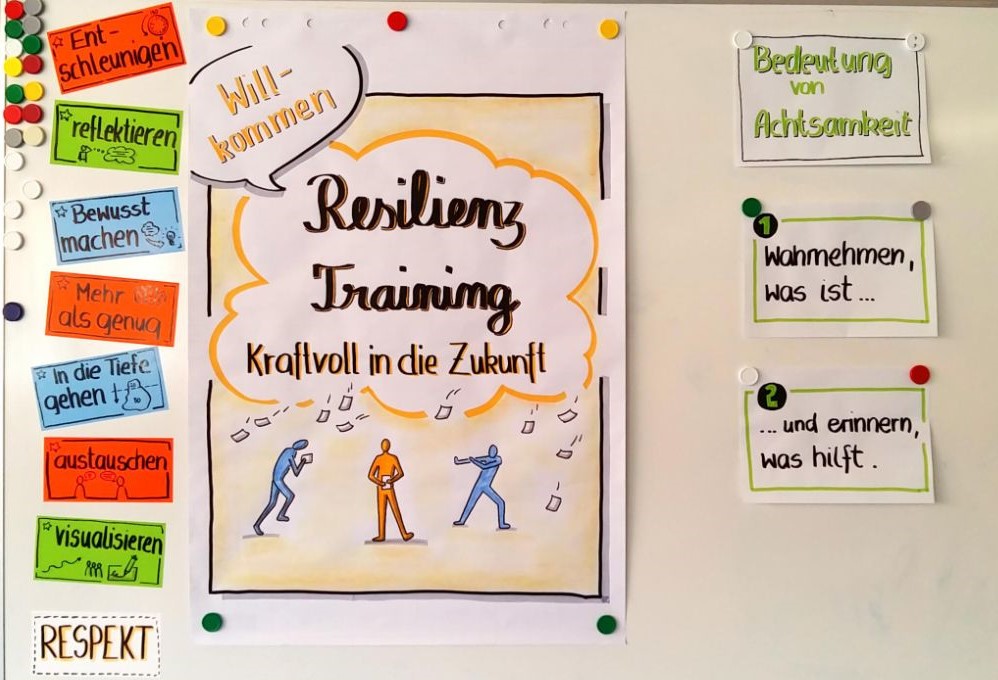 Ent-
schleunigen
reflektieren
Bewusst
machen
Mehr
als genug
In die Tiefe
gehen
austauschen
visualisieren
RESPEKT
Will-
kommen
Resilienz
Training
Kraftvoll in die Zukunft
Bedeutung
von
Achtsamkeit
1
Wahrnehmen,
was ist ...
2
... und erinnern,
was hilft.